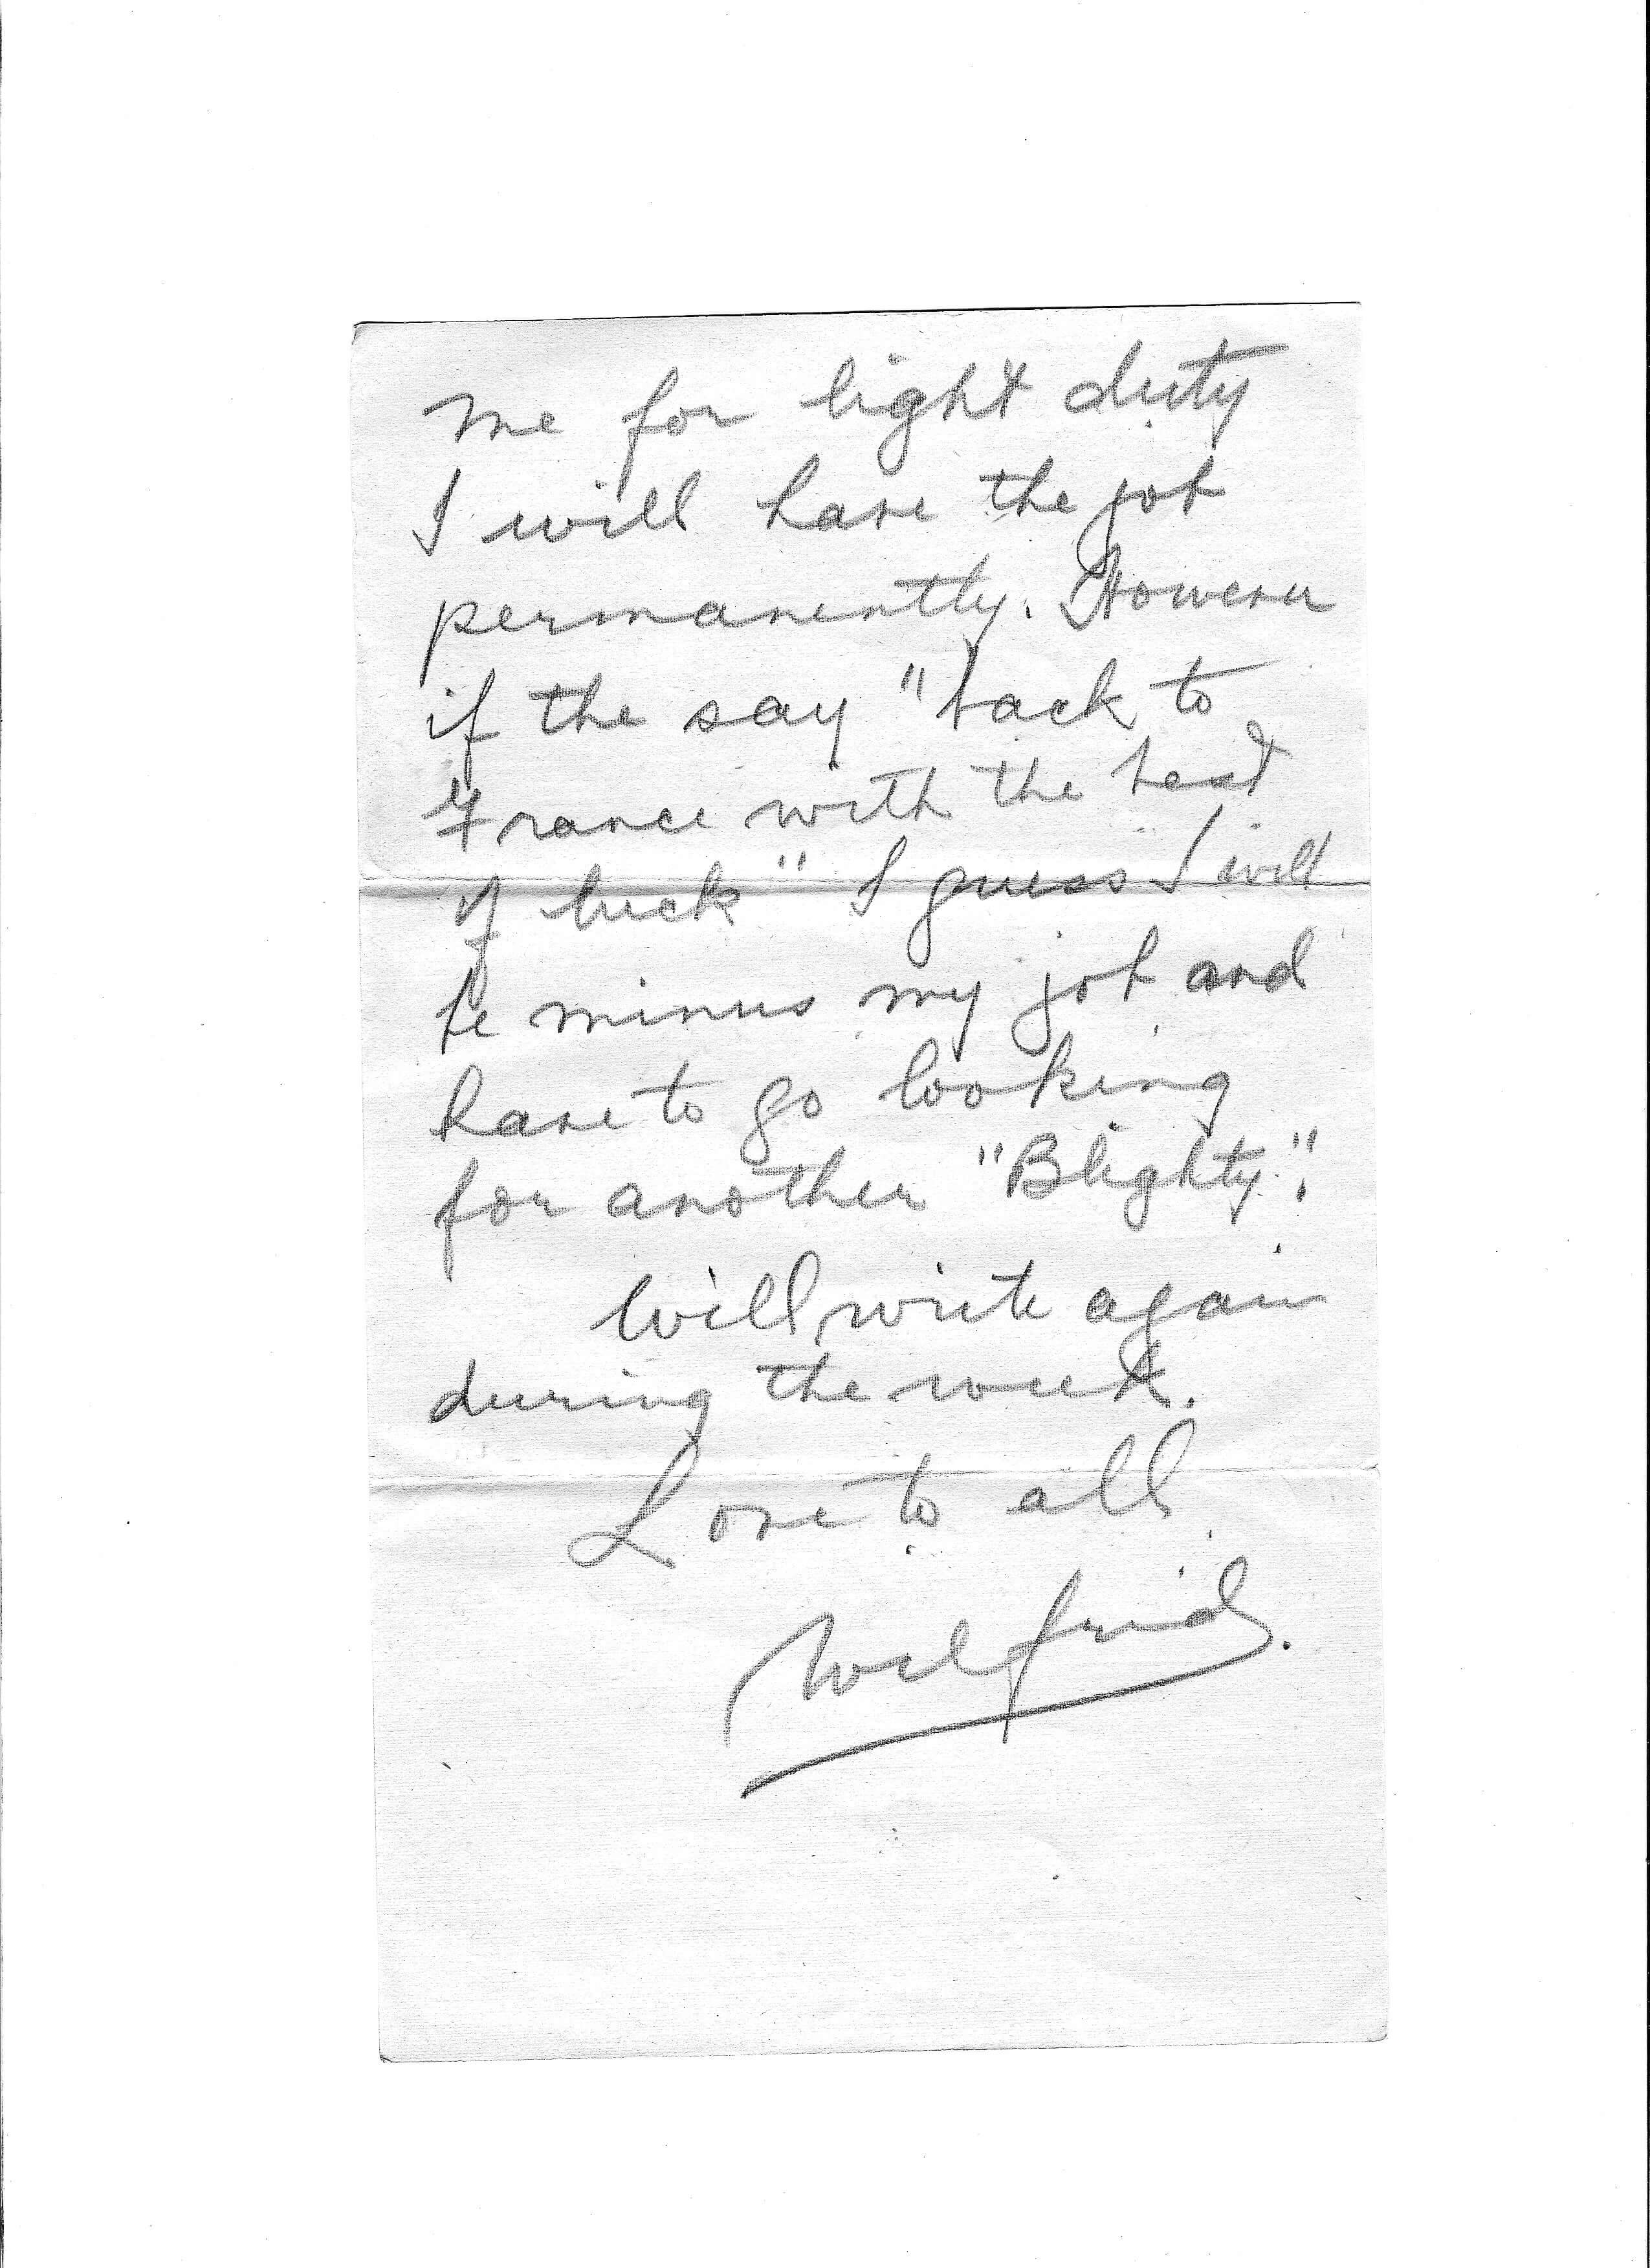 me for light duty
I will have the job
permanently. However
if the say "back to
France with the best
of luck" I guess I will
be minus my job and
have to go looking
for another "Blighty".
Will write again
during the week.
Love to all
Wilfrid.